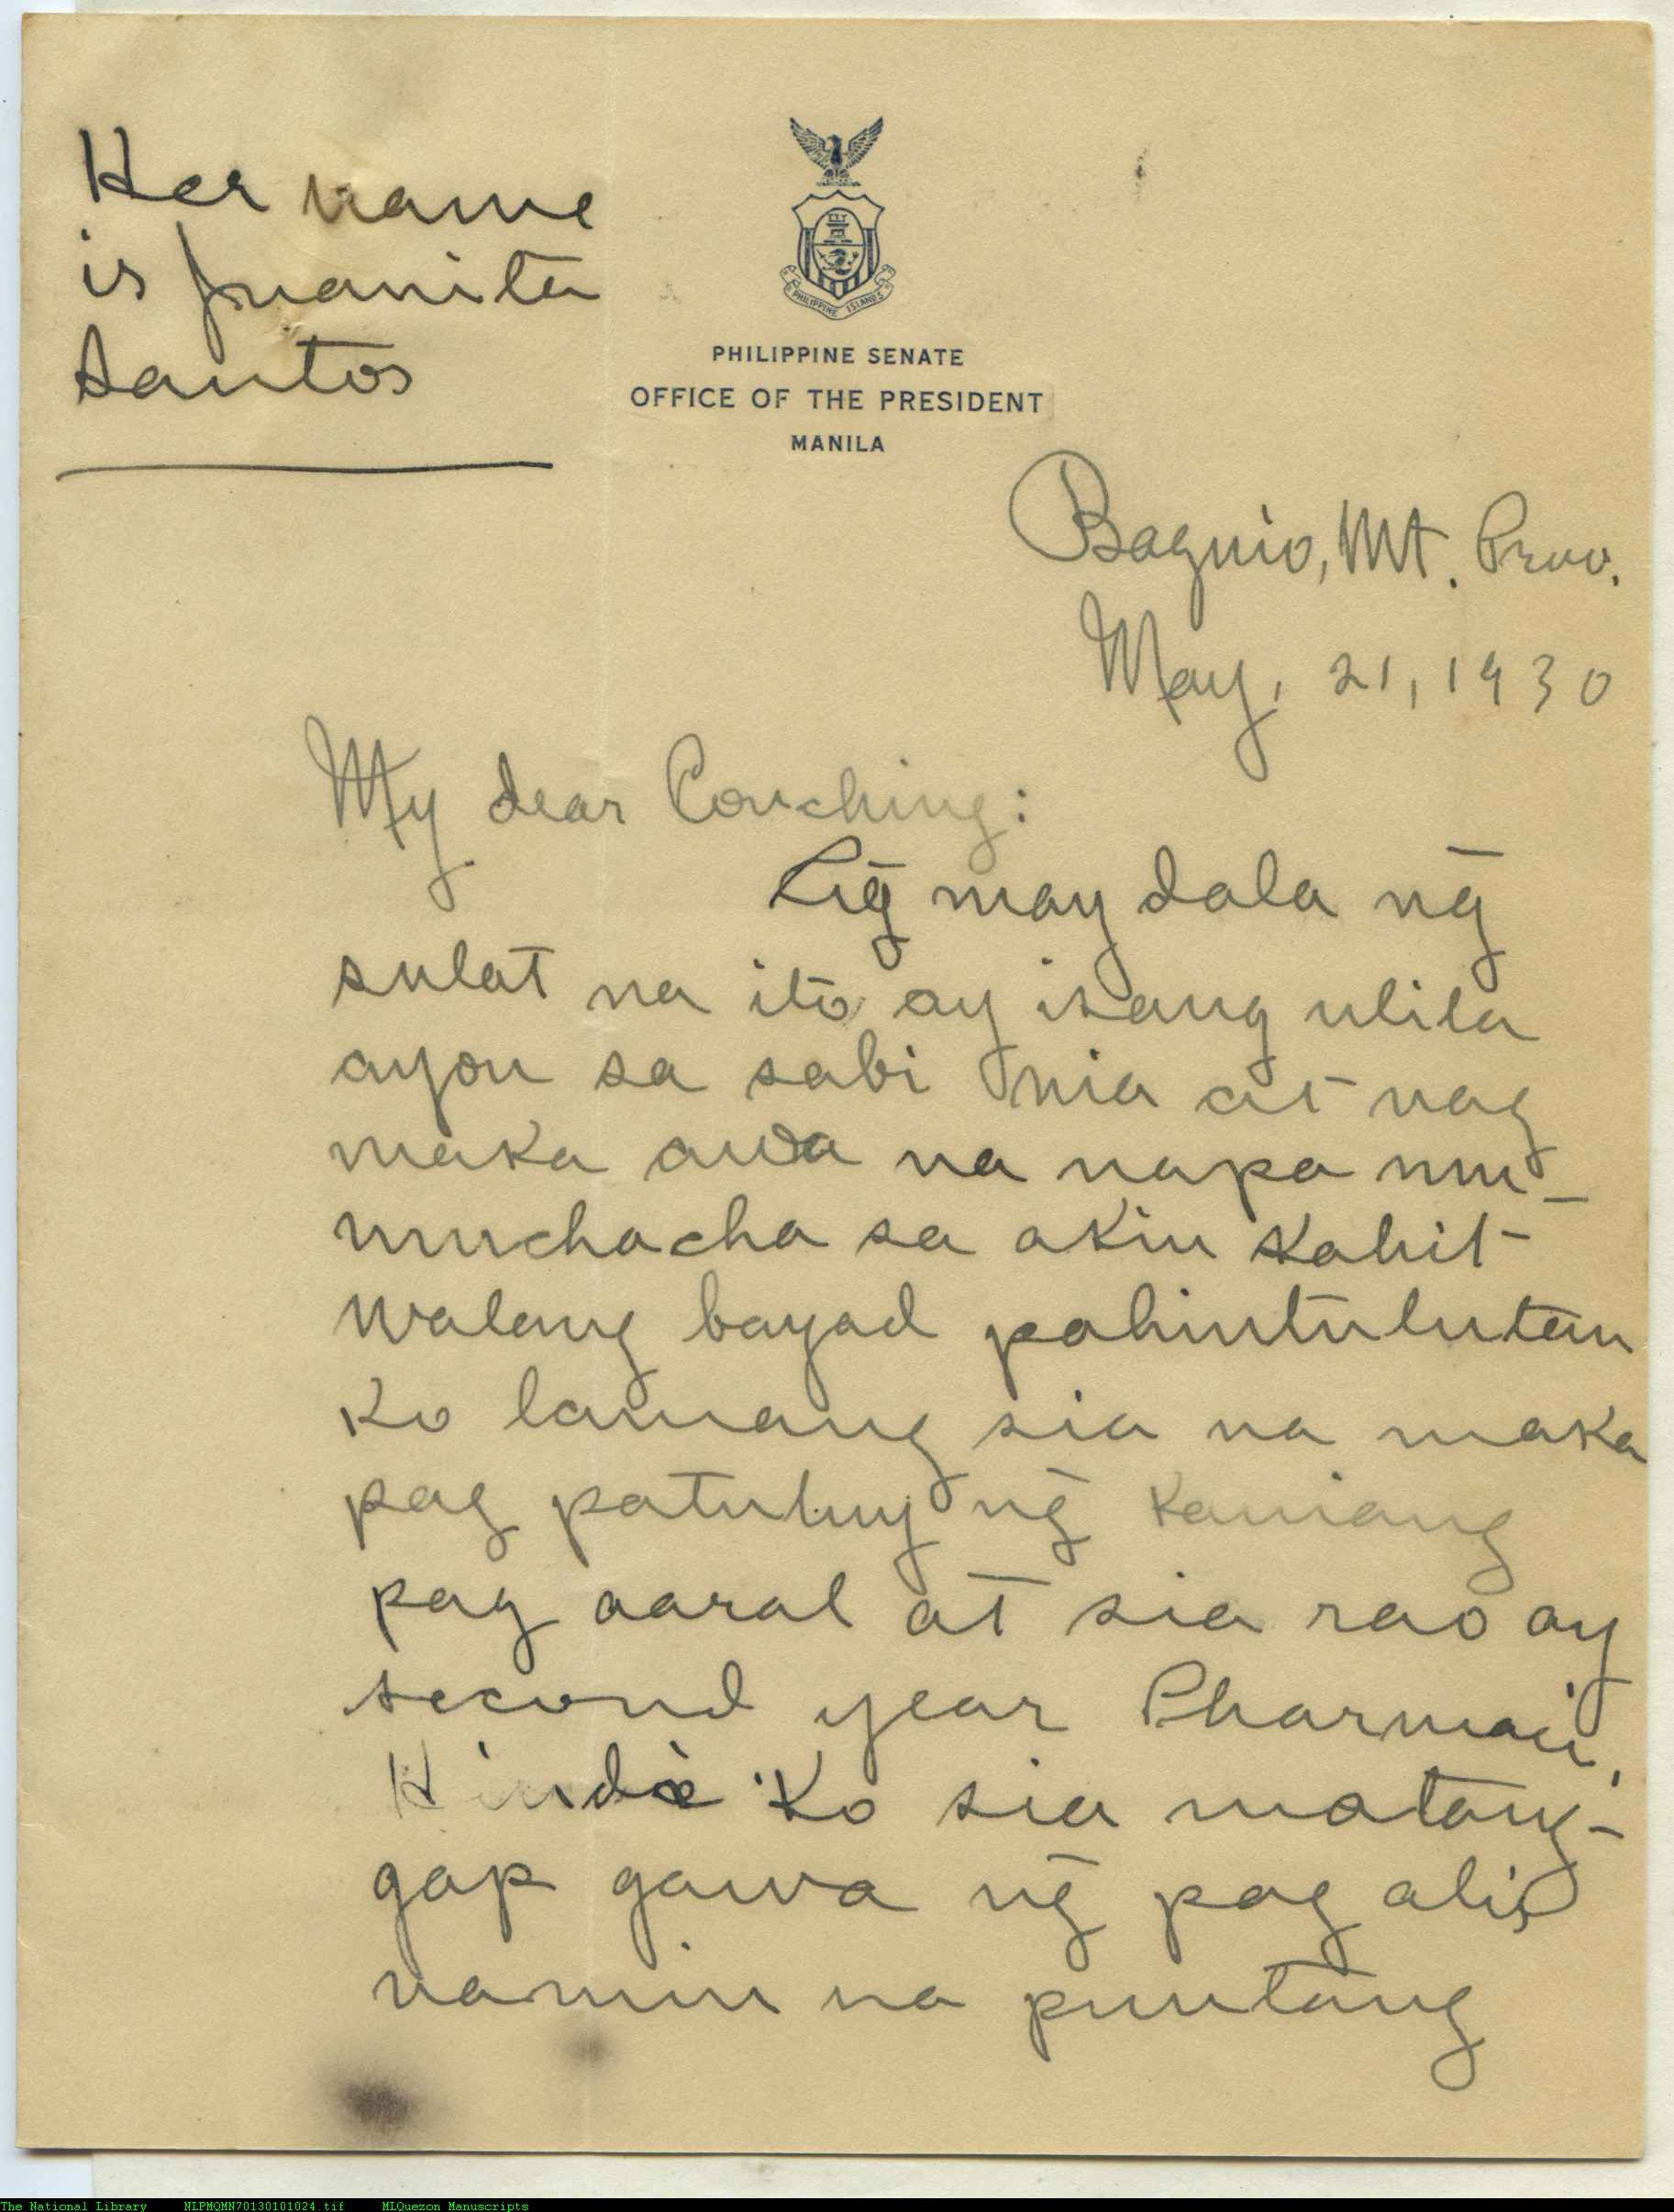 Her name
is Juanita
Santos
PHILIPPINE ISLANDS
PHILIPPINE SENATE
OFFICE OF THE PRESIDENT
MANILA
Baguio, Mt. Prov.
May, 21, 1930
My dear Conching:
may dala ng̃
sulat na ito ay isang ulila
ayon sa sabi nia at nag
maka awa na napa mu-
muchacha sa akin kahit
walang bayad pahintulutan
ko lamang sia na maka
pag patuluy ng̃ kaniang
pag aaral at sia rao ay
second year
Hindi ko sia matang-
gap gawa ng̃ pag alis
namin na puntang
The National Library NLPMQMN70130101024.tif MLQuezon Manuscripts